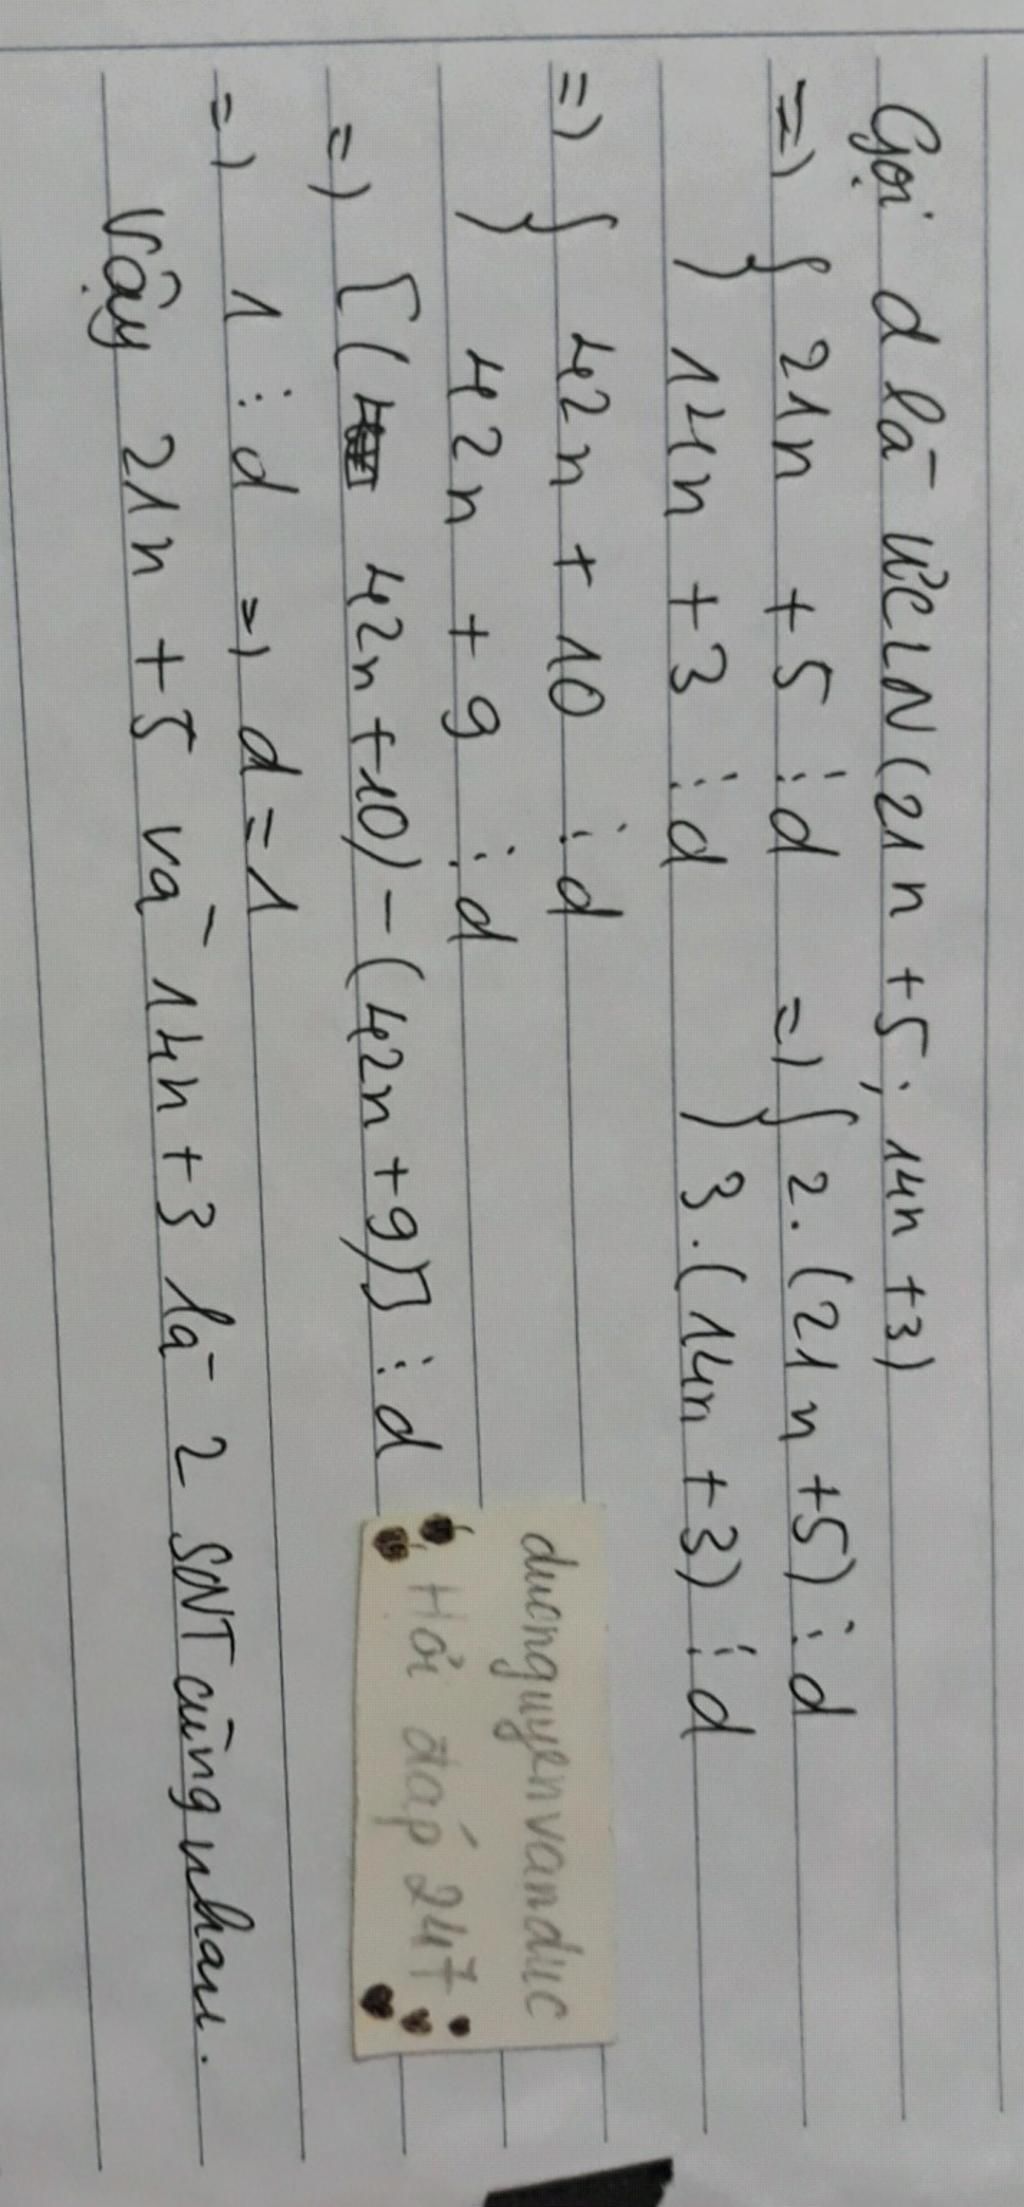 Gọi d là ƯCLN(21n + 5; 14n + 3)
=> { 21n + 5 ⋮ d => { 2.(21n + 5) ⋮ d
14n + 3 ⋮ d 3.(14n + 3) ⋮ d
=> { 42n + 10 ⋮ d
42n + 9 ⋮ d
=> [( 42n + 10) - (42n + 9)] ⋮ d
=> 1 ⋮ d => d = 1
Vậy 21n + 5 và 14n + 3 là 2 SNT cùng nhau.
duonguyenvanduc
Hỏi đáp 247